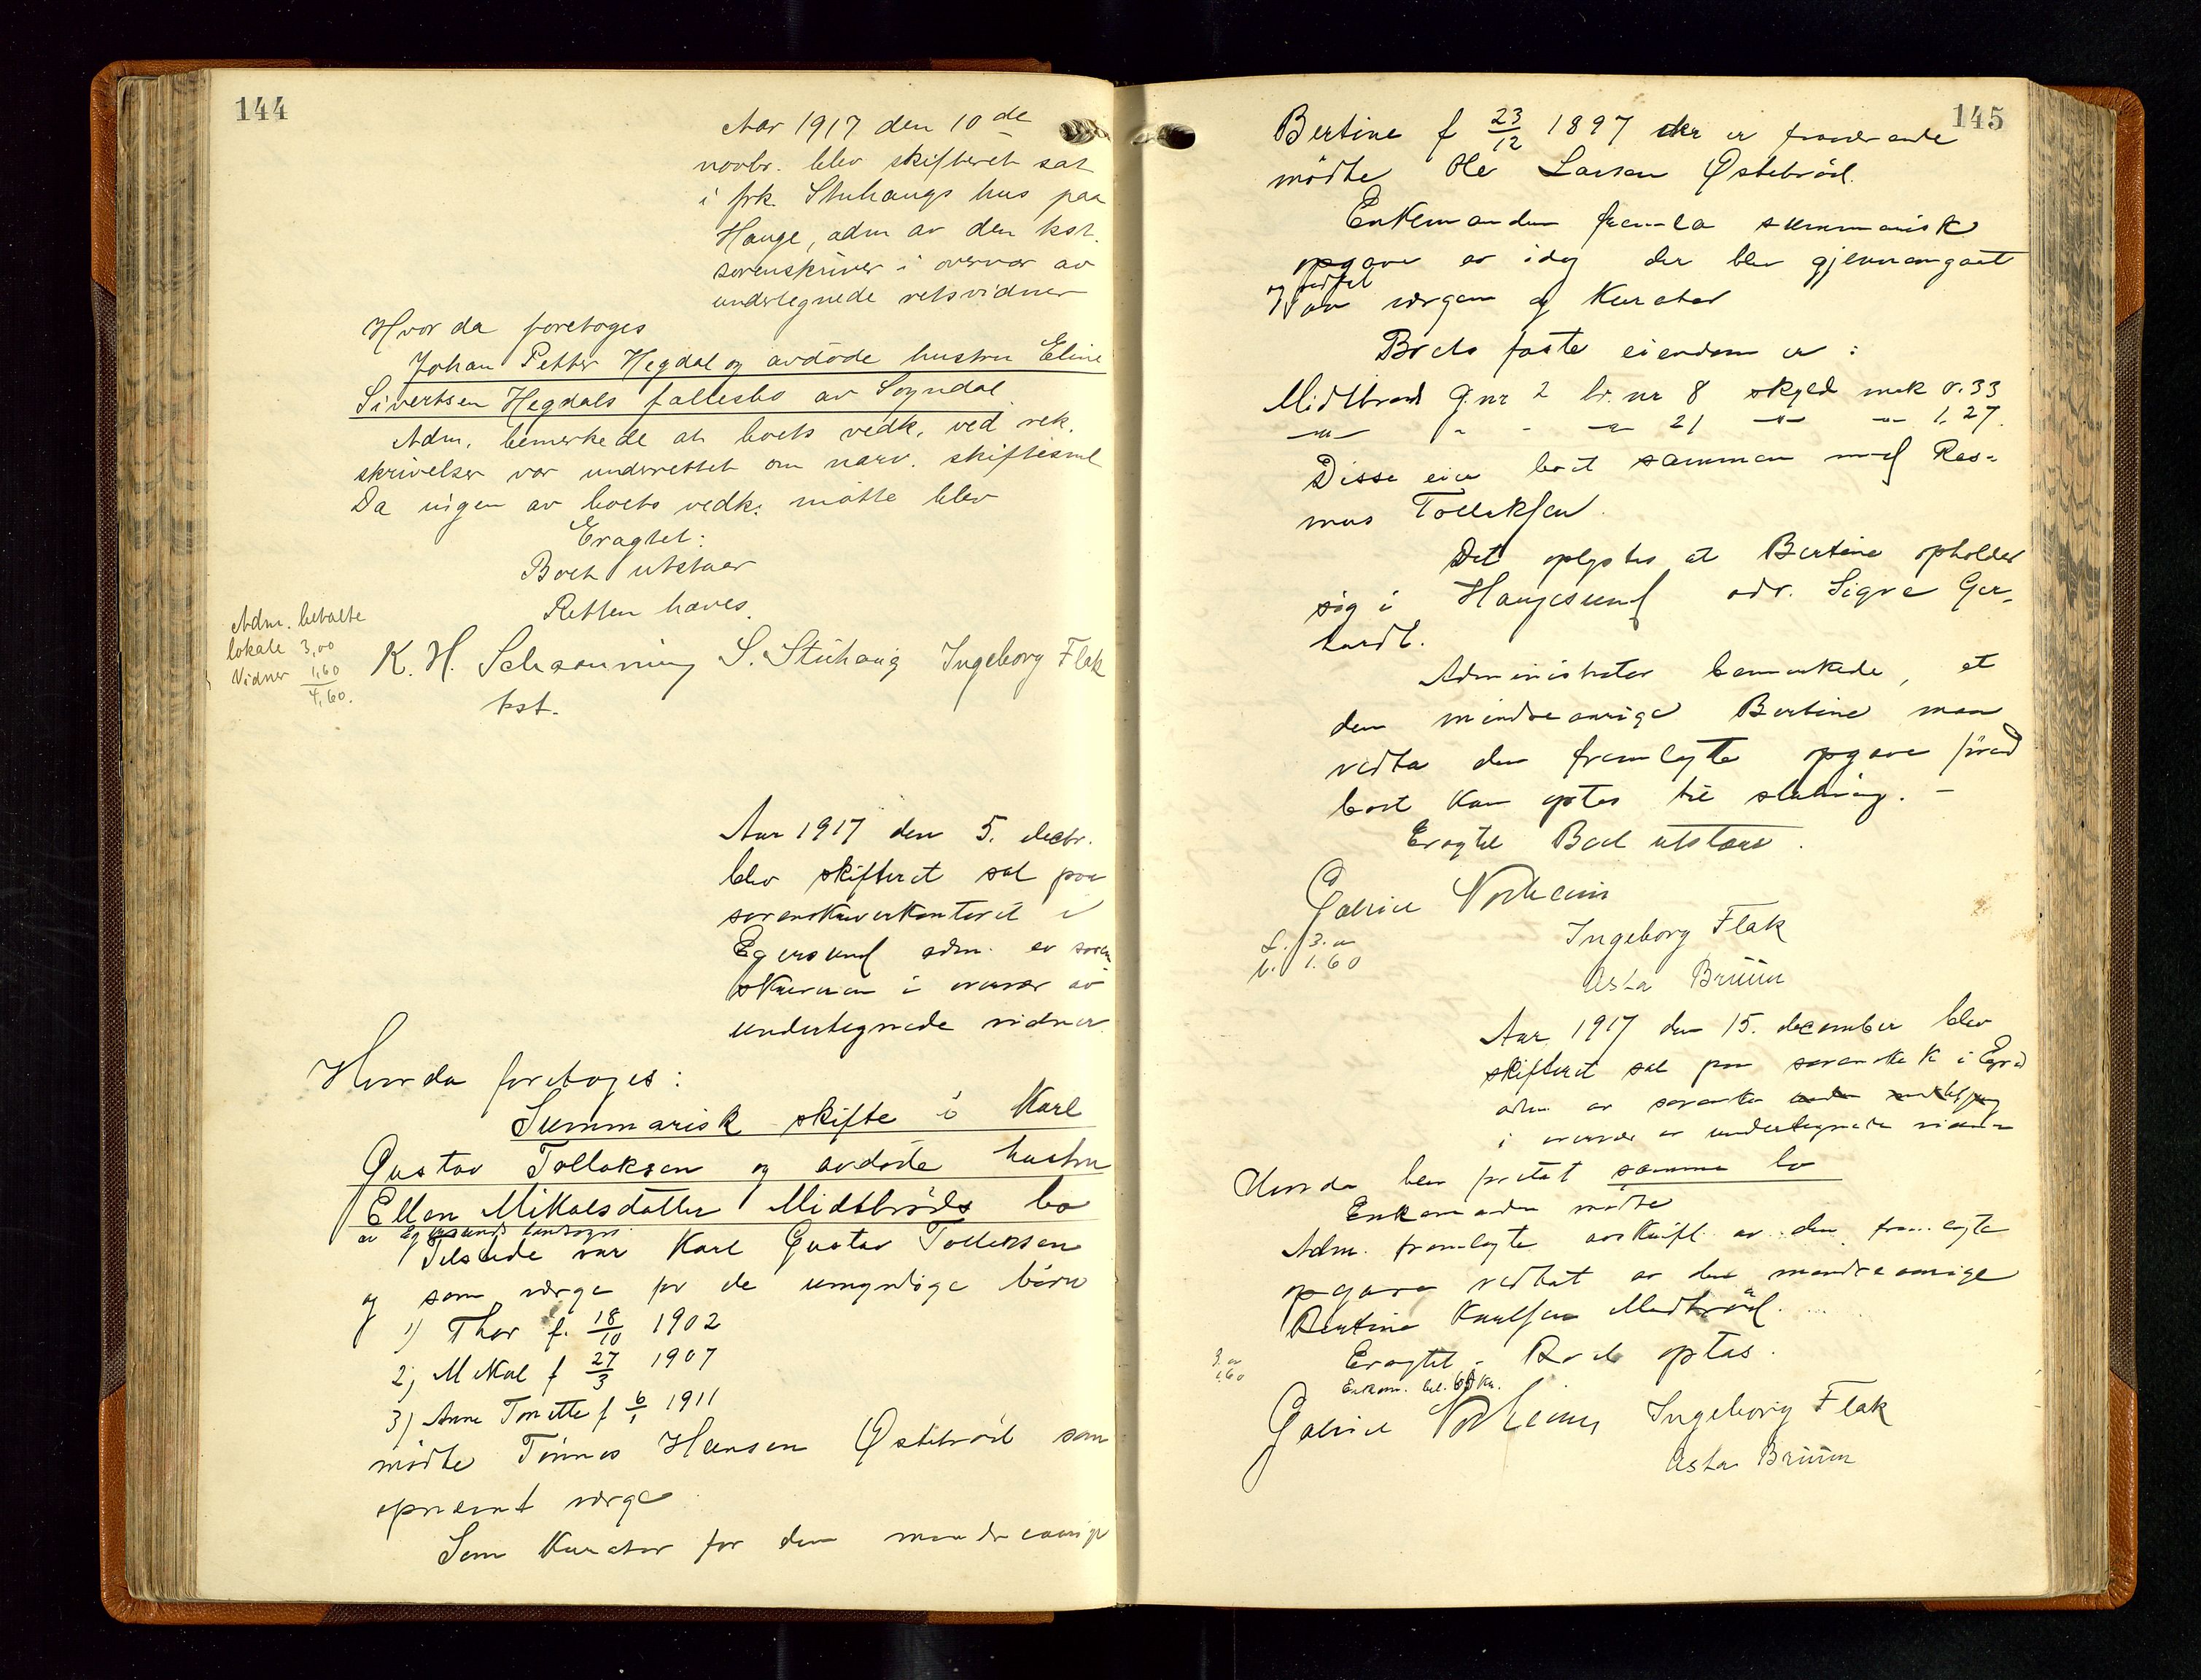 144
Aar 1917 den 10de
novbr. blev skifteret sat
i frk. Stuhaugs hus paa
Hauge, adm av den kst.
sorenskriver i overvær av
undertegnede retsvidner
Hvor da foretoges
Johan Petter Hegdal og avdøde hustru Eline
Sivertsen Hegdals fællesbo av Sogndal.
Adm. bemerkede at boets vedk. ved rek.
skrivelser var underettet om nærv. skiftesml
Da ingen av boets vedk. møtte blev
Eragtet:
Boet utstaar
Retten hæves.
Adm. betalte
lokale 3,00
Vidner 1,60
4,60.
K. H. Schanning S. Stuhaug Ingeborg Flak
kst.
Aar 1917 den 5. decbr.
blev skifteret sat paa
sorenskriverkontoret i
Egersund adm. av soren
skriveren i overvær av
undertegnede vidner
Hvor da foretoges:
Summarisk skifte i Karl
Gustav Tollaksen og avdøde hustru
Ellen Mikalsdatter Midtbrøds bo
av Egersunds landsogn
Tilstede var Karl Gustav Tollaksen
og som værge for de umyndige børn
1) Thor f. 18/10 1902
2) Mikal f 27/3 1907
3) Anne Tonette f 6/1 1911
mødte Tønnes Hansen Østebrød som
opnævnt værge
Som kurator for den mindreaarige
145
Bertine f 23/12 1897 der er fraværende
mødte Ole Larsen Østebrød.
Enkemanden fremla summarisk
opgave av idag der blev gjennemgaat
og vedtat
av værgen og kurator
Boets faste eiendom er:
Midtbrød g.nr 2 br.nr 8 skyld mrk 0.33
-"- " - -"- 21 -"- -"- 1.27.
Disse eier boet sammen med Ras-
mus Tollaksen.
Det oplystes at Bertine opholder
sig i Haugesund adr. Sigva Ger-
hardt.
Administrator bemerkede, at
den mindreaarige Bertine maa
vedta den fremlagte opgave förend
boet kan optas til slutning. –
Eragtet Boet utstaar.
Gabriel Norheim
L. 3.00
V. 1.60
Ingeborg Flak
Asta Brüün
Aar 1917 den 15. december blev
skifteret sat paa sorenskr.k i Egrsd
adm. av sorenskr
i overvær av undertegnede vidner
Hvor da blev foretat samme bo
Enkemanden mødte
Adm. fremlagte avskrift av den fremlagte
opgave vedtat av den mindreaarige
Bertine Karlsen Midtbrød.
Eragtet: Boet optas.
3.00
1.60
Enkem. bet. Kr.
Gabriel Norheim Ingeborg Flak
Asta Brüün